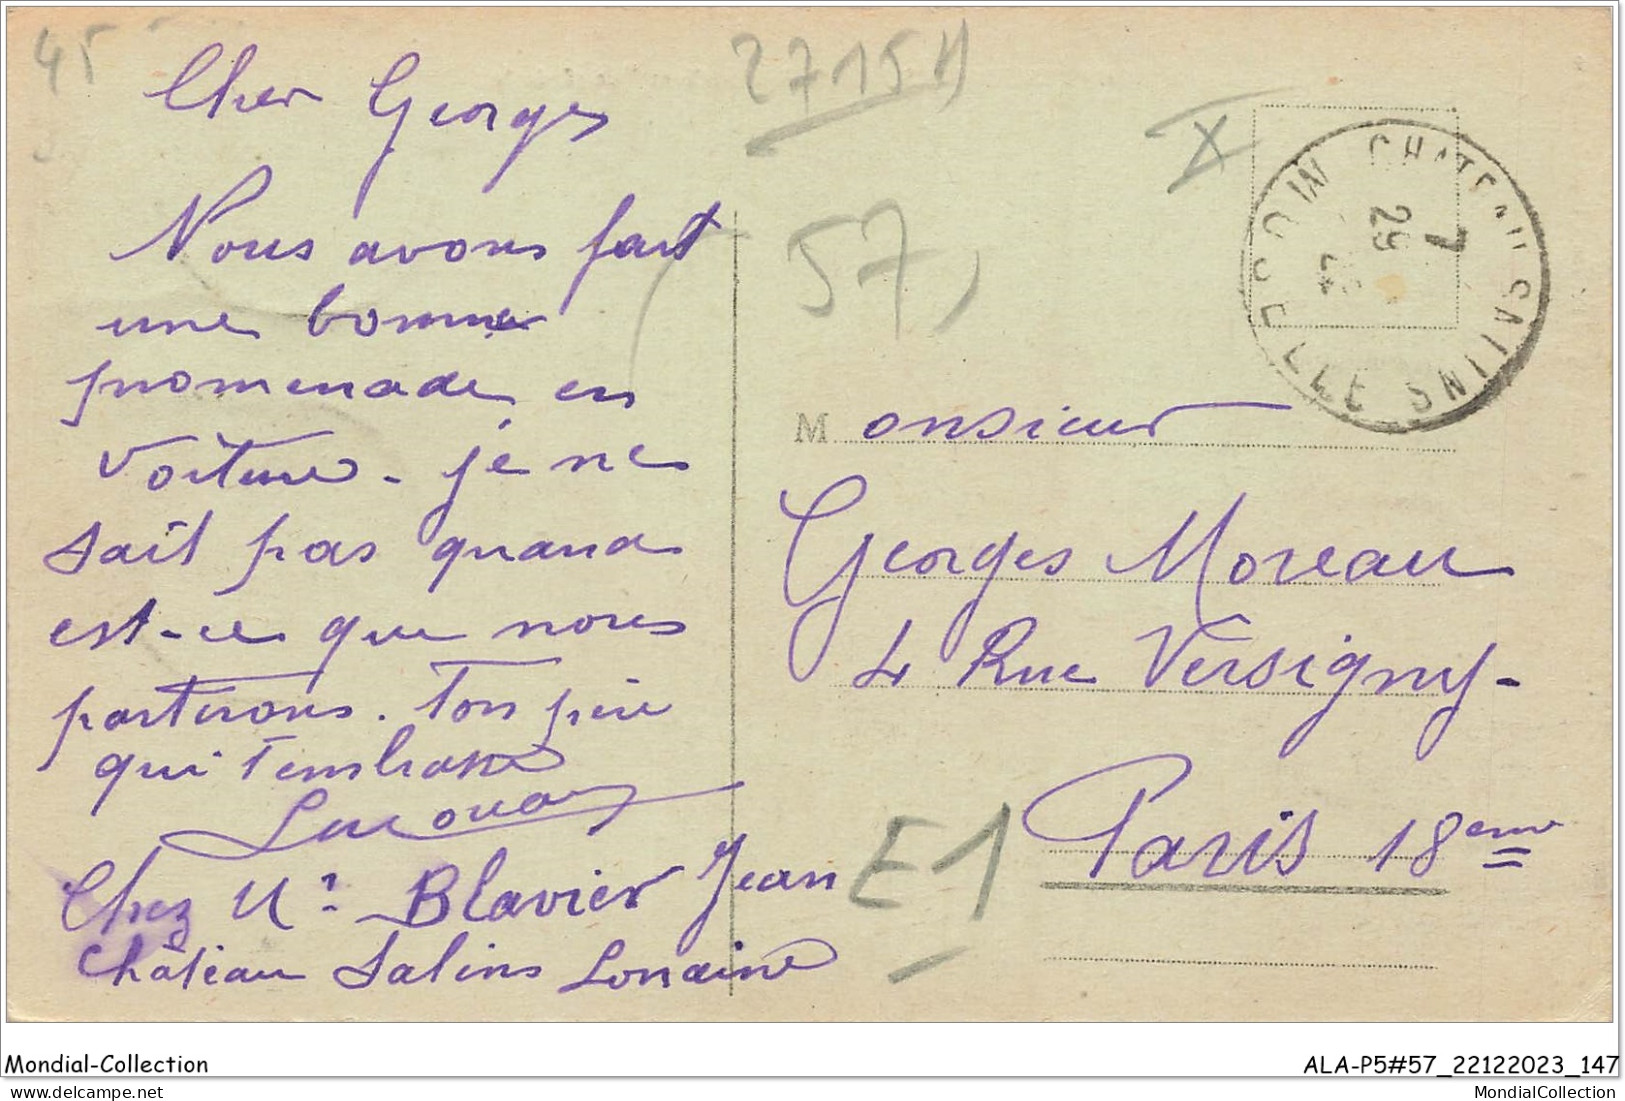 45
Cher Georges
Nous avons fait
une bonne
promenade en
voiture - je ne
sait pas quand
est-ce que nous
partirons. Ton père
qui t'embrasse
Chez Mr. Blavier Jean
Château Salins Lorraine
27151)
X
57)
CHATEAU SALINS
MOSELLE
7
29
Monsieur
Georges Moreau
4 Rue Versigny-
Paris 18eme
E1
Mondial-Collection
ALA-P5#57_22122023_147
MondialCollection